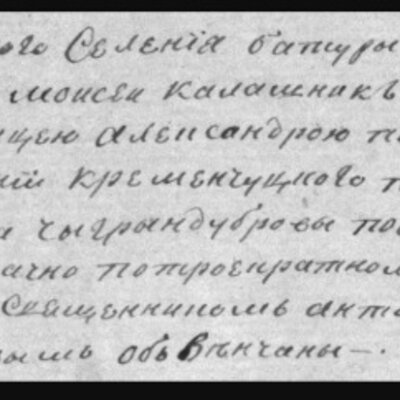 ого Селенія батуры
моисеи калашникъ
ицею александрою п
ній кременчуцкого п
а чыгриндубровы по
ачно потроекратном
священникомъ анто
ымъ обьвѣнчаны —.